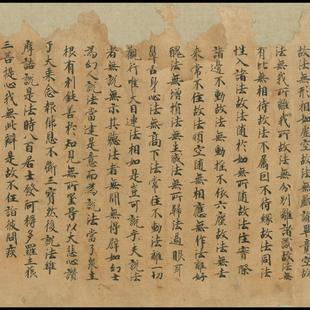 故法無形相如虛空故法無戲論畢竟空故
法無我所離我所故法無分別離諸識故法無
有比無相待故法不屬因不待緣故法同法
性入諸法故法隨於如無所隨故法住實際
諸邊不動故法無動搖不依六塵故法無去
來常不住故法順空隨無相應無作法離好
醜法無增損法無生滅法無所歸法過眼耳
鼻舌身心法無高下法常住不動法離一切
觀行唯大目連法相如是豈可說乎夫說法
者無說無示其聽法者無聞無得譬如幻士
為幻人說法當建是意而為說法當了眾生
根有利鈍善於知見無所罣礙以大悲心讚
于大乘念報佛恩不斷三寶然後說法維
摩詰說是法時八百居士發阿耨多羅三藐
三菩提心我無此辯是故不任詣彼問疾